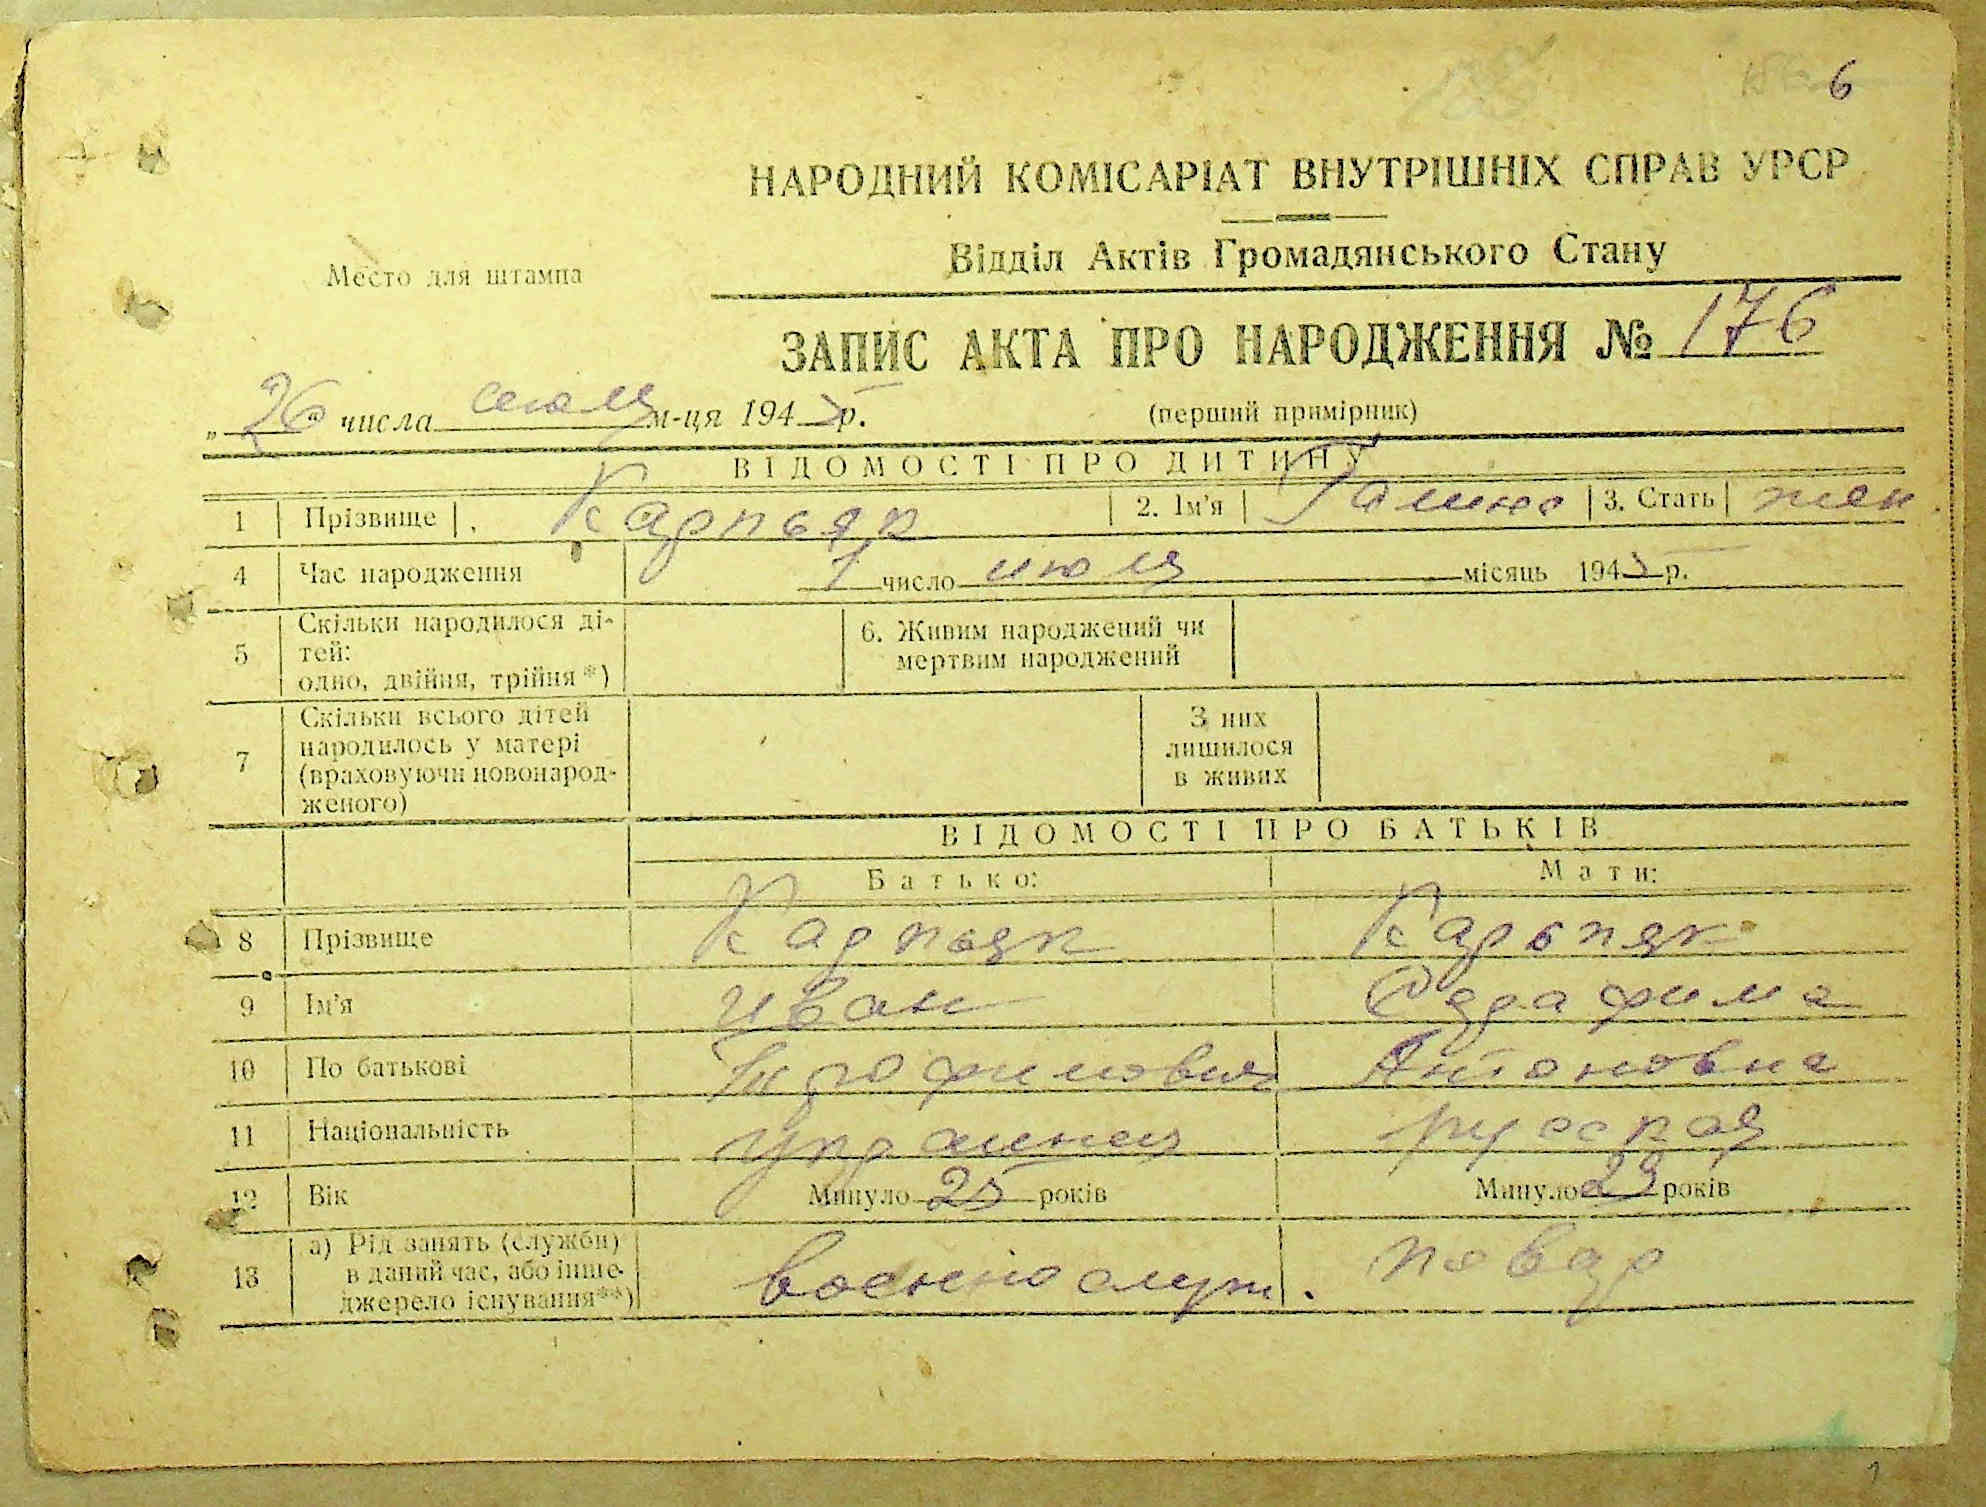 6
НАРОДНИЙ КОМІСАРІАТ ВНУТРІШНІХ СПРАВ УРСР
Відділ Актів Громадянського Стану
Место для штампа
ЗАПИС АКТА ПРО НАРОДЖЕННЯ № 176
„26" числа июля м-ця 1945 р. (перший примірник)
ВІДОМОСТІ ПРО ДИТИНУ
1 Прізвище Карпьяк 2. Ім'я Галина 3. Стать жен.
4 Час народження 1 число июля місяць 1945 р.
5 Скільки народилося дітей: одно, двійня, трійня*) 6. Живим народжений чи мертвим народжений
7 Скільки всього дітей народилось у матері (враховуючи новонародженого) З них лишилося в живих
ВІДОМОСТІ ПРО БАТЬКІВ
Батько: Мати:
8 Прізвище Карпьяк Карьпяк
9 Ім'я Иван Серафима
10 По батькові Трофимович Антоновна
11 Національність украинец русская
12 Вік Минуло 25 років Минуло 23 років
13 а) Рід занять (служби) в даний час, або інше джерело існування**) военнослуж. повар